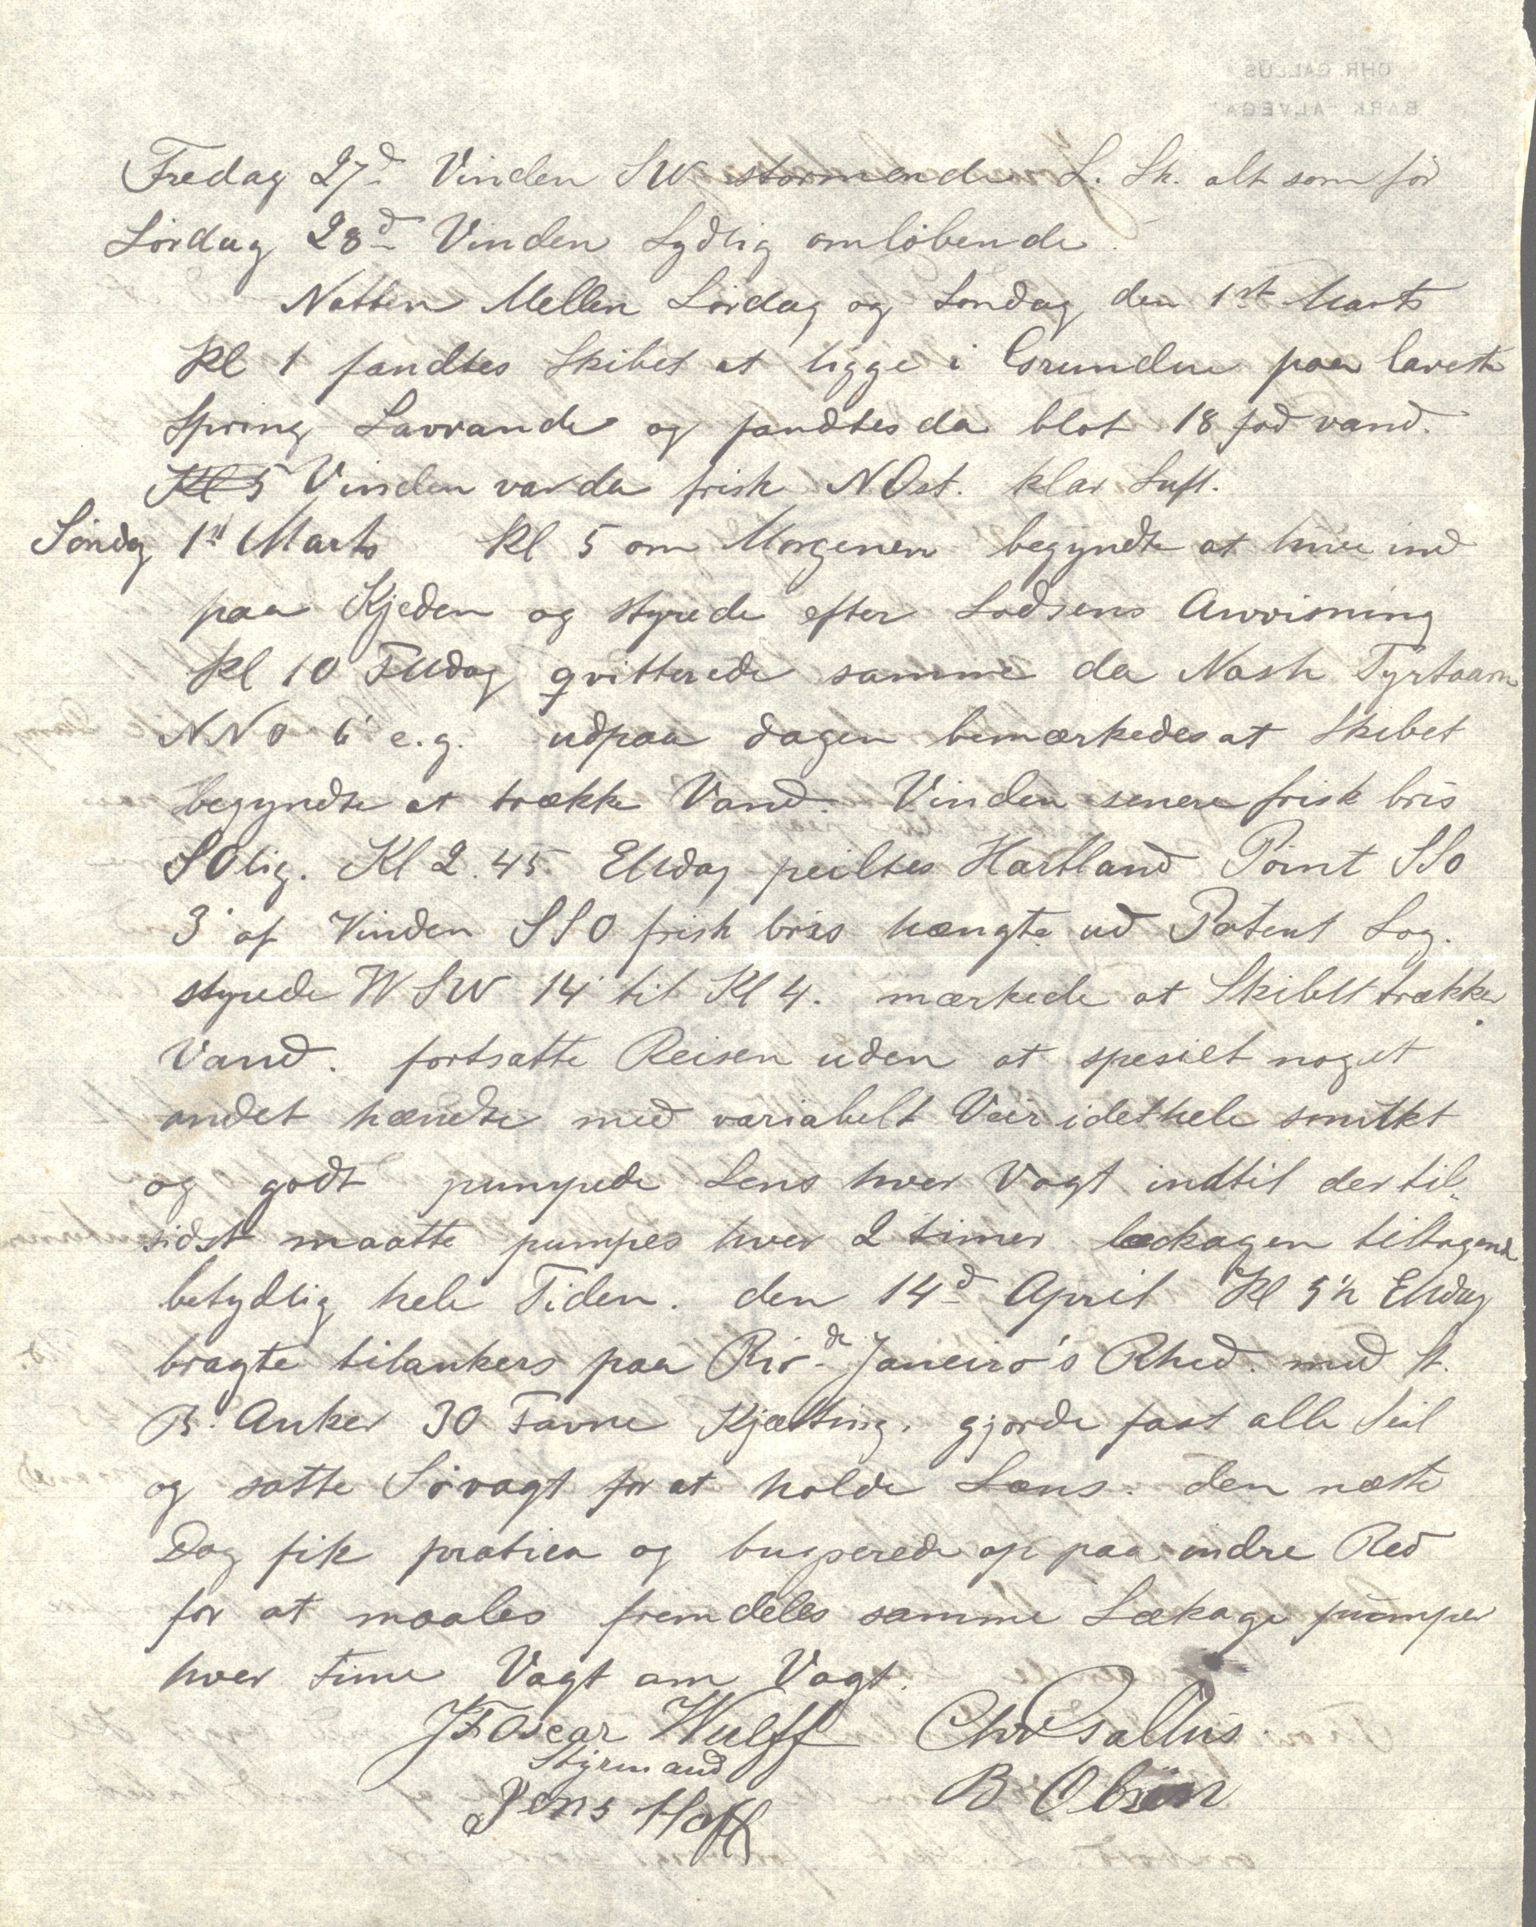 Fredag 27d Vinden SW stormende L. Sk. alt som før
Lørdag 28d Vinden Sydlig omløbende
Natten Mellen Lørdag og Søndag den 1st Marts
Kl 1 fandtes Skibet at ligge i Grunden paa laveste
Spring Lavvande og fandtes da blot 18 fod vand.
Kl 5 Vinden var da frisk NOst. klar Luft.
Søndag 1st Marts Kl 5 om Morgenen begyndte at hive ind
paa Kjeden og styrede efter Lodsens Anvisning
Kl 10 FMdag qvitterede samme da Nash Fyrtaarn
NNO 6' e.g. udpaa dagen bemærkedes at Skibet
begyndte at trække Vand. Vinden senere frisk bris
SOlig. Kl 2.45 EMdag peiltes Hartland Point SSO
3' af Vinden SSO frisk bris hængte ud Patent Log.
styrede WSW 14' til Kl 4. mærkede at Skibet trækker
Vand. fortsatte Reisen uden at spesielt noget
andet hændte med variabelt Veir idethele smukt
og godt pumpede Lens hver Vagt indtil der til„
sidst maatte pumpes hver 2 timer lækagen tiltagende
betydlig hele Tiden. den 14d April Kl 5½ EMdag
bragte tilankers paa Rio de Janeiro's Rhed. med St.
B. Anker 30 Favne Kjætting. gjorde fast alle Seil
og satte Søvagt for at holde Læns. den næste
Dag fik pratica og bugserede op paa indre Red
for at maales fremdeles samme Lækage pumper
hver time Vagt om Vagt.
J F Oscar Wulff Chr Gallus
Styrmand
Jens Hoff B Olsen
CHR GALLUS
BARK "ALVEGA"